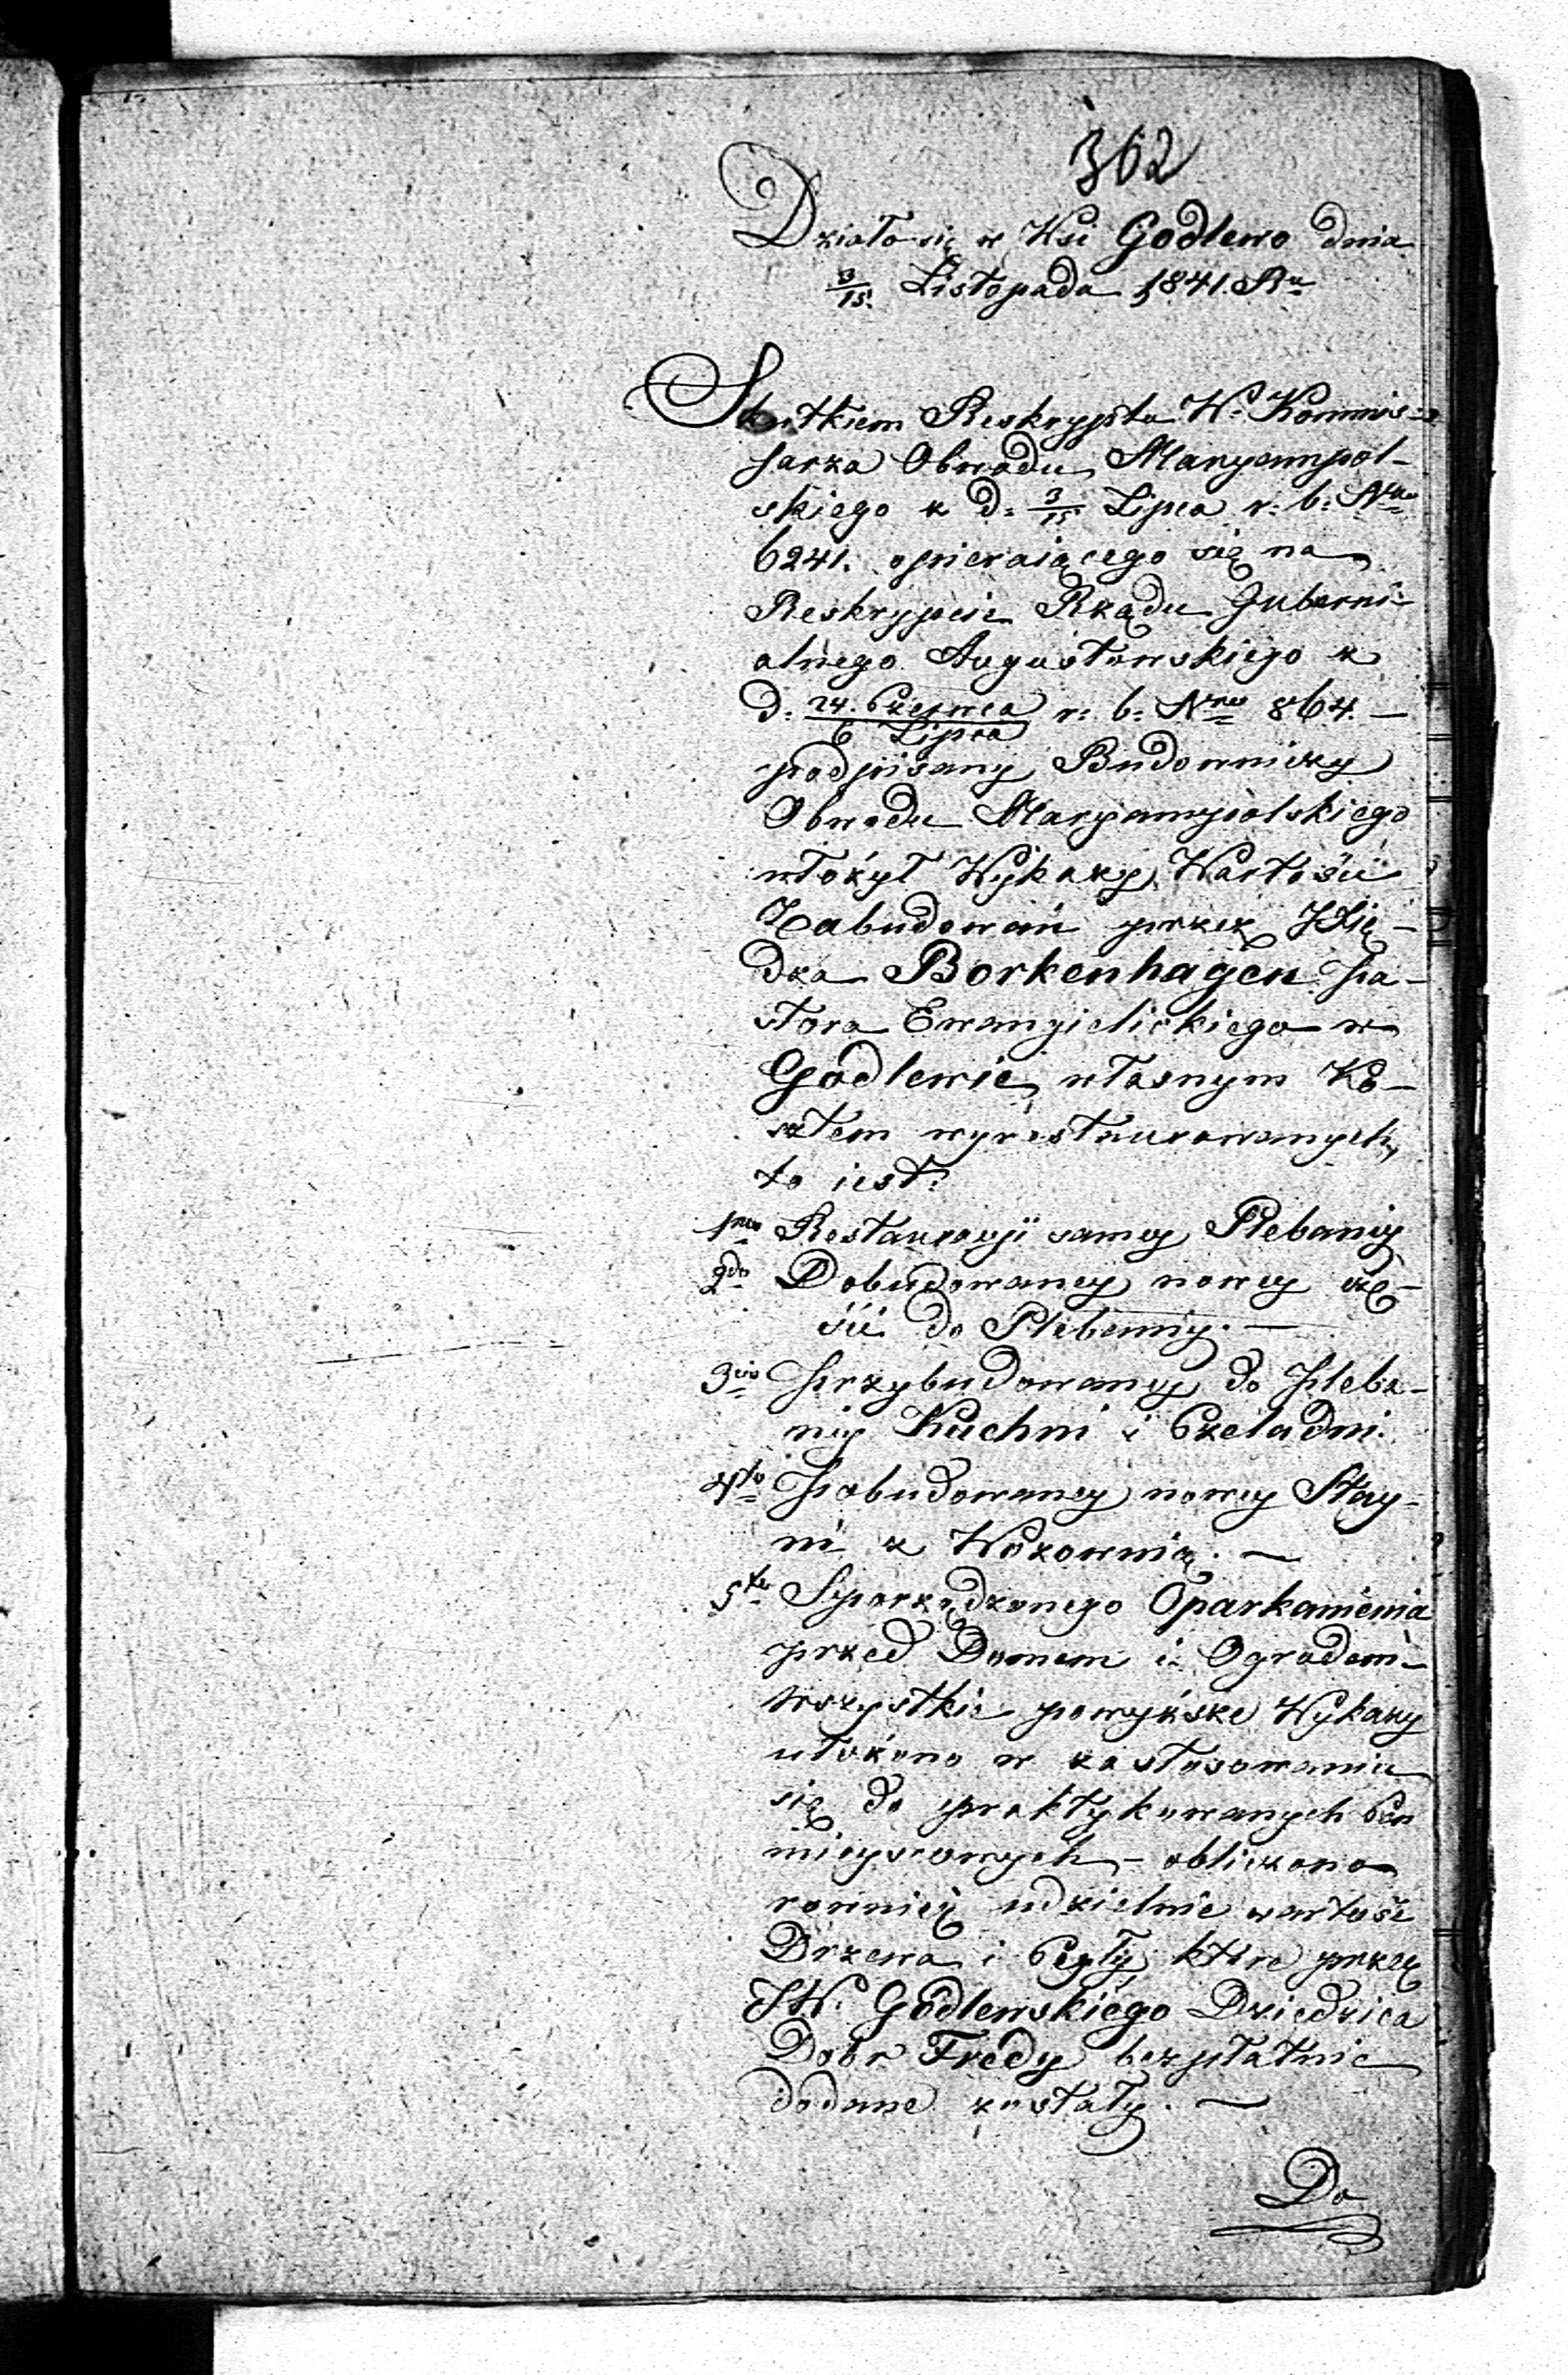 362
Działo się w Wsi Godlewo dnia
3/15. Listopada 1841. Ru
Skutkiem Reskryptu Wo Kommis-
sarza Obwodu Maryampol-
skiego z d: 3/15 Lipca r: b: Nro
6241. opieraiącego się na
Reskrypcie Rządu Guberni-
alnego Augustowskiego z
d: 24. Czerwca/6 Lipca r: b: Nro 864. —
podpisany Budowniczy
Obwodu Maryampolskiego
włożył Wykazy Wartości
Zabudowań przez Xię-
dza Borkenhagen Pa-
stora Ewangielickiego w
Godlewie własnym Ko-
sztem wyrestaurowanych,
to iest:
1mo Restauracyi samey Plebanij
2do Dobudowaney nowey czę-
ści do Plebanij. —
3cio Przybudowaney do Pleba-
nij Kuchni i Czeladni.
4to Pobudowaney nowey Stay-
ni z Wozownią. —
5to Sporządzonego Oparkanienia
przed Domem i Ogrodem —
Wszystkie powyższe Wykazy
ułożono w zastosowaniu
się do praktykowanych Cen
mieyscowych, — obliczono
rownież udzielnie wartość
Drzewa i Cegły, które przez
JW. Godlewskiego Dziedzica
Dobr Fredy bezpłatnie
dodane zostały. —
Do